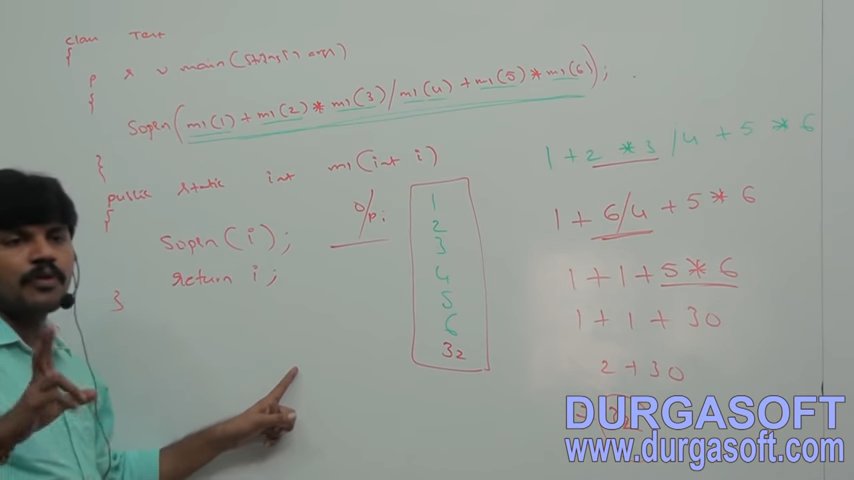 class Test
{
p s v main(String[] args)
{
Sopln(m1(1) + m1(2) * m1(3)/m1(4) + m1(5) * m1(6));
}
public static int m1(int i)
{
Sopln(i);
return i;
}
O/P:
1
2
3
4
5
6
32
1 + 2 * 3 / 4 + 5 * 6
1 + 6/4 + 5 * 6
1 + 1 + 5 * 6
1 + 1 + 30
2 + 30
DURGASOFT
www.durgasoft.com